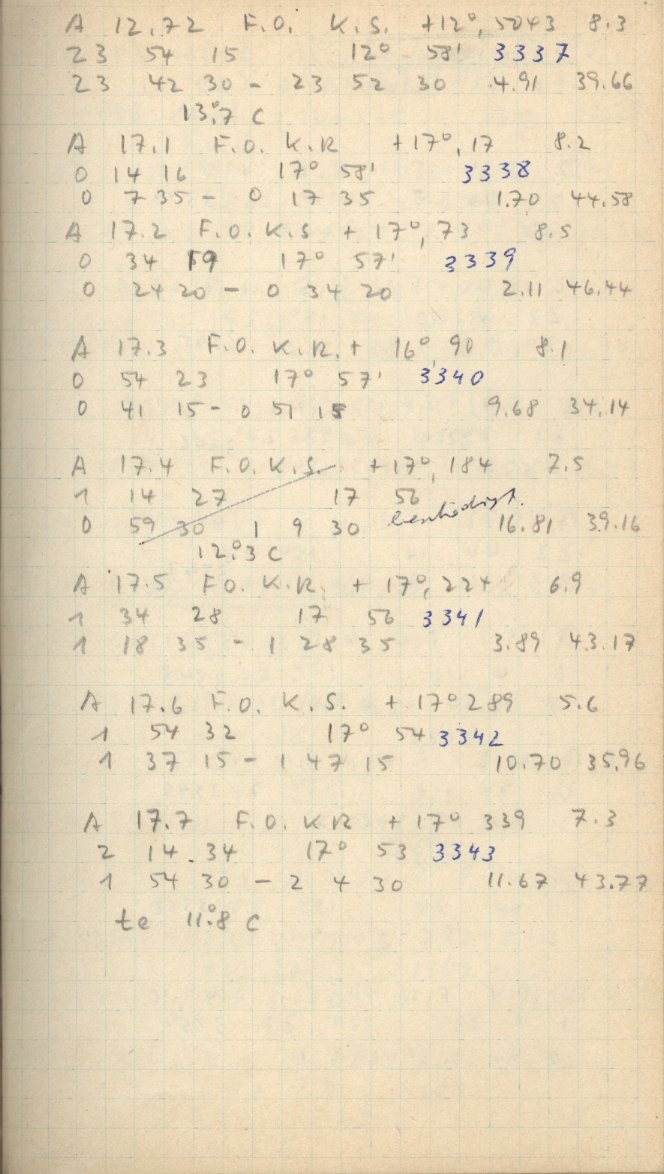 A 12.72 F.O. K.S. +12°, 5043 8.3
23 54 15 12° 58' 3337
23 42 30 - 23 52 30 4.91 39.66
13°.7 C
A 17.1 F.O. K.R +17°, 17 8.2
0 14 16 17° 58' 3338
0 7 35 - 0 17 35 1.70 44.58
A 17.2 F.O. K.S + 17°, 73 8.5
0 34 19 17° 57' 3339
0 24 20 - 0 34 20 2.11 46.44
A 17.3 F.O. K.R. + 16°, 90 8.1
0 54 23 17° 57' 3340
0 41 15 - 0 51 15 9.68 34.14
A 17.4 F.O. K.S. +17°, 184 7.5
1 14 27 17 56
0 59 30 1 9 30 beschädigt. 16.81 39.16
12°.3 C
A 17.5 F.O. K.R. + 17°, 224 6.9
1 34 28 17 56 3341
1 18 35 - 1 28 35 3.89 43.17
A 17.6 F.O. K.S. + 17° 289 5.6
1 54 32 17° 54 3342
1 37 15 - 1 47 15 10.70 35.96
A 17.7 F.O. KR + 17° 339 7.3
2 14.34 17° 53 3343
1 54 30 - 2 4 30 11.67 43.77
te 11°.8 C